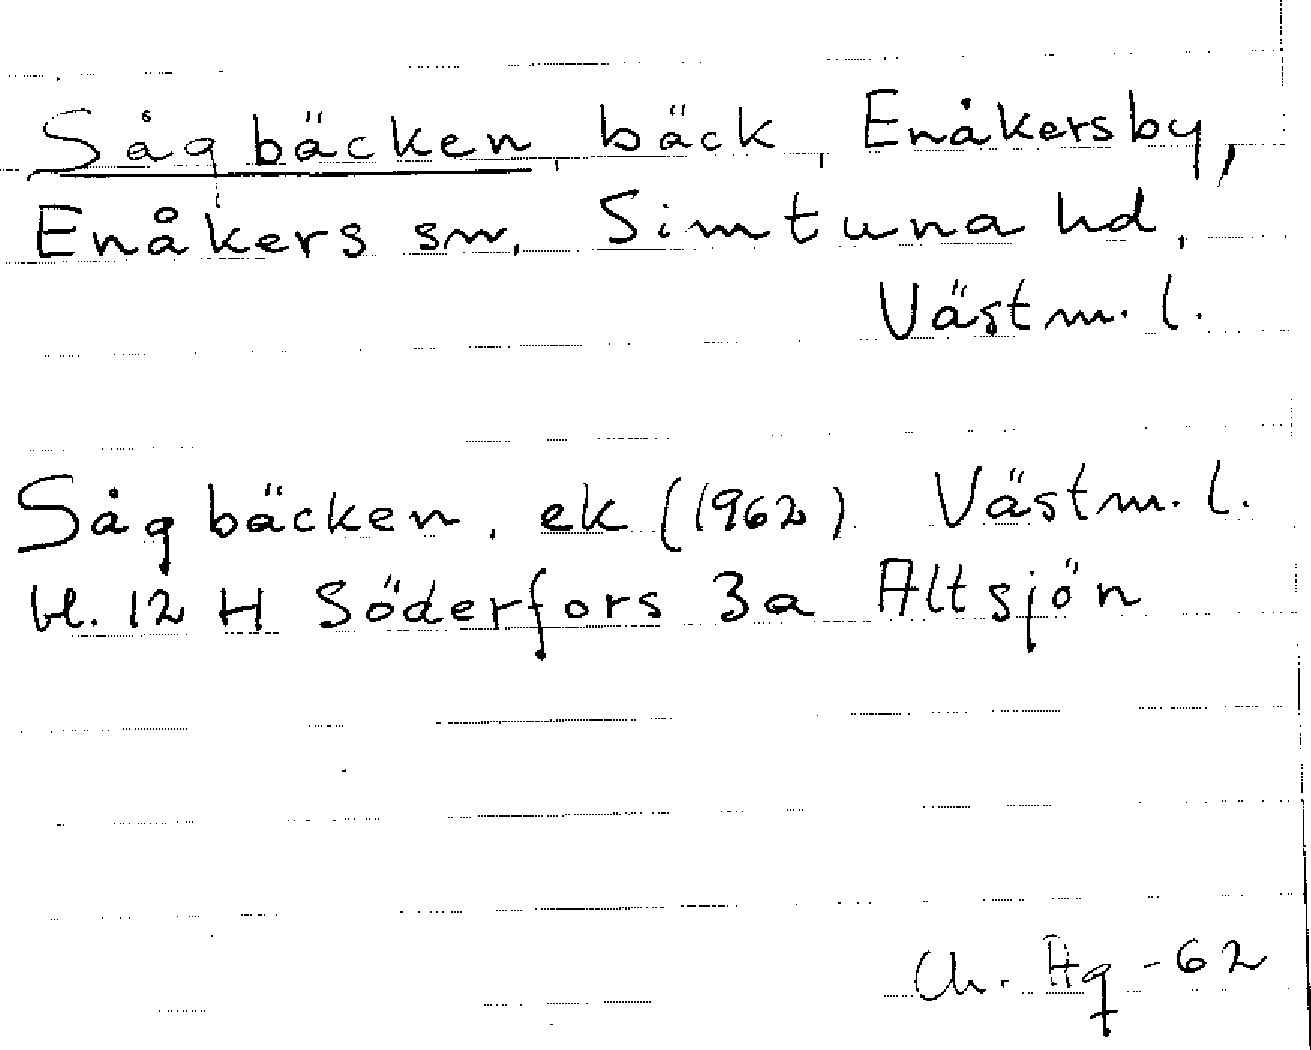 Sågbäcken, bäck, Enåkersby,
Enåkers sn, Simtuna hd,
Västm. l.
Sågbäcken, ek (1962) Västm. l.
bl. 12 H Söderfors 3a Altsjön
Ch. Hg -62